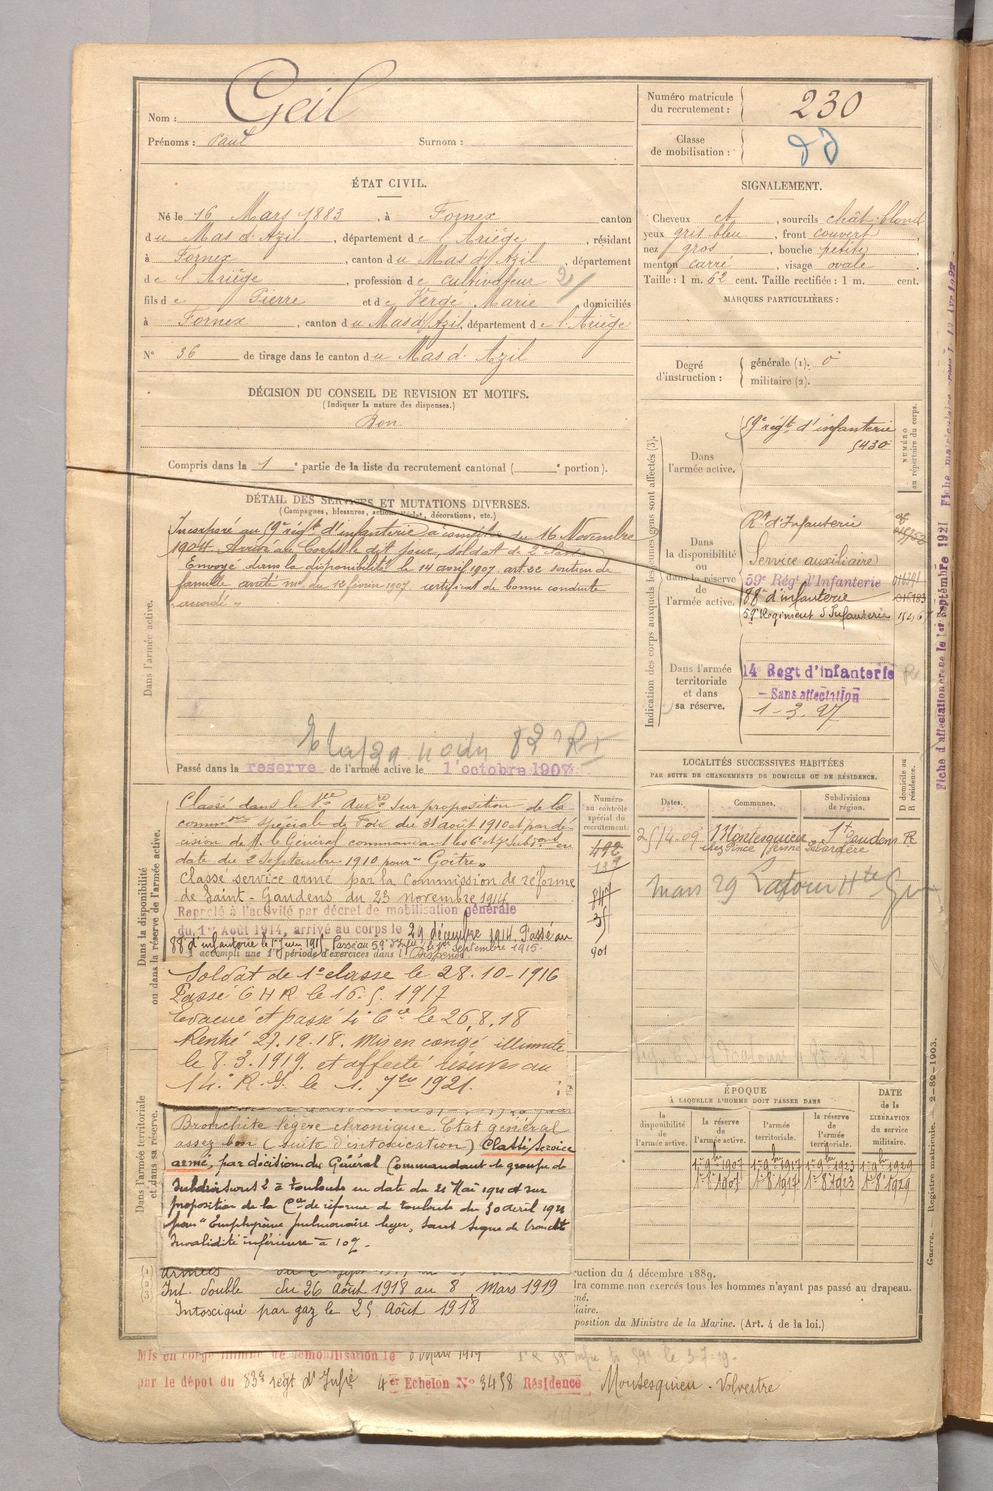 Nom : Geil
Prénoms : Paul Surnom :
Numéro matricule du recrutement : 230
Classe de mobilisation :
ÉTAT CIVIL.
Né le 16 Mars 1883, à Fornex canton
du Mas d'Azil, département de l'Ariège, résidant
à Fornex, canton du Mas d'Azil, département
de l'Ariège, profession de cultivateur 21
fils de Pierre et de Verge Marie domiciliés
à Fornex, canton du Mas d'Azil, département de l'Ariège
N° 36 de tirage dans le canton du Mas d'Azil
SIGNALEMENT.
Cheveux et, sourcils chât. blond
yeux gris bleu, front couvert
nez gros, bouche petite
menton carré, visage ovale
Taille : 1 m. 62 cent. Taille rectifiée : 1 m. cent.
MARQUES PARTICULIÈRES :
Degré d'instruction :
générale (1). 0
militaire (2).
DÉCISION DU CONSEIL DE REVISION ET MOTIFS.
(Indiquer la nature des dispenses.)
Bon
Compris dans la 1e partie de la liste du recrutement cantonal ( e portion).
DÉTAIL DES SERVICES ET MUTATIONS DIVERSES.
(Campagnes, blessures, actions d'éclat, décorations, etc.)
Dans l'armée active.
Incorporé au 59e régt d'infanterie à compter du 16 Novembre
1904. Arrivé au Corps le dit jour, soldat de 2e classe
Envoyé dans la disponibilité le 14 avril 1907 art. 22 soutien de
famille arrêté mel du 12 février 1907 certificat de bonne conduite
accordé
Passé dans la réserve de l'armée active le 1 octobre 1907
Indication des corps auxquels les jeunes gens sont affectés (3).
NUMÉRO au répertoire du corps.
Dans l'armée active.
59e régt d'infanterie
5430
Dans la disponibilité ou dans la réserve de l'armée active.
Rt d'Infanterie
Service auxiliaire
59e Régt d'Infanterie
88e d'infanterie
59e Régiment d'Infanterie
Dans l'armée territoriale et dans sa réserve.
14e Regt d'infanterie
- Sans affectation
1-3.27
Fiche d'affectation le 1er Septembre 1921
LOCALITÉS SUCCESSIVES HABITÉES
PAR SUITE DE CHANGEMENTS DE DOMICILE OU DE RÉSIDENCE.
Dates. Communes. Subdivisions de région. D domicile ou R résidence.
25/4-09 Montesquieu St Gaudens R
mars 29 Latour Hte
Numéro au contrôle spécial du recrutement.
901
Dans la disponibilité ou dans la réserve de l'armée active.
Classé dans le Sce Auxre Sur proposition de la
common spéciale de Foix du 31 août 1910 et par dé-
cision de M. le Général commandant les 6e et 7e Subdons en
date du 2 Septembre 1910 pour "Goitre"
Classé service armé par la Commission de réforme
de Saint-Gaudens du 23 novembre 1914
Rappelé à l'activité par décret de mobilisation générale
du 1er Août 1914, arrivé au corps le 24 décembre 1914. Passé au
88e d'infanterie le 1er juin 1915. Passé au 59e d'infie le 1er septembre 1915.
a accompli une 1re période d'exercices dans l Dispensé
Soldat de 1e classe le 28.10-1916
Passé C H R le 16.5.1917
Evacué et passé 4e Cie le 26.8.18
Rentré 27.12.18. Mis en congé illimité
le 8.3.1919 et affecté réserves au
14e R.I. le 1. 7bre 1921.
Dans l'armée territoriale et dans sa réserve.
Bronchite légère chronique Etat général
assez bon (suite d'intoxication) Classé service
armé, par décision du Général Commandant le groupe de
Subdivisions 2 à Toulouse en date du 21 Mai 1921 et sur
proposition de la Con de réforme de Toulouse du 30 avril 1921
pour "Emphysème pulmonaire léger, sans signe de bronchite
Invalidité inférieure à 10%.
armées
Int. double du 26 août 1918 au 8 Mars 1919
Intoxiqué par gaz le 25 Août 1918
ÉPOQUE
À LAQUELLE L'HOMME DOIT PASSER DANS
la disponibilité de l'armée active. la réserve de l'armée active. l'armée territoriale. la réserve de l'armée territoriale. DATE de la LIBÉRATION du service militaire.
1er 9bre 1907 1er 9bre 1917 1er 9bre 1923 1er 9bre 1929
1er 8bre 1907 1er 8bre 1917 1er 8bre 1923 1er 8bre 1929
uction du 4 décembre 1889.
ira comme non exercés tous les hommes n'ayant pas passé au drapeau.
né.
liaire.
position du Ministre de la Marine. (Art. 4 de la loi.)
Guerre. Registre matricule. 2-89-1903.
Mis en congé illimité de démobilisation le 8 Mars 1919
par le dépôt du 83e regt d'Infie 4er Echelon N° 3458 Résidence Montesquieu-Volvestre